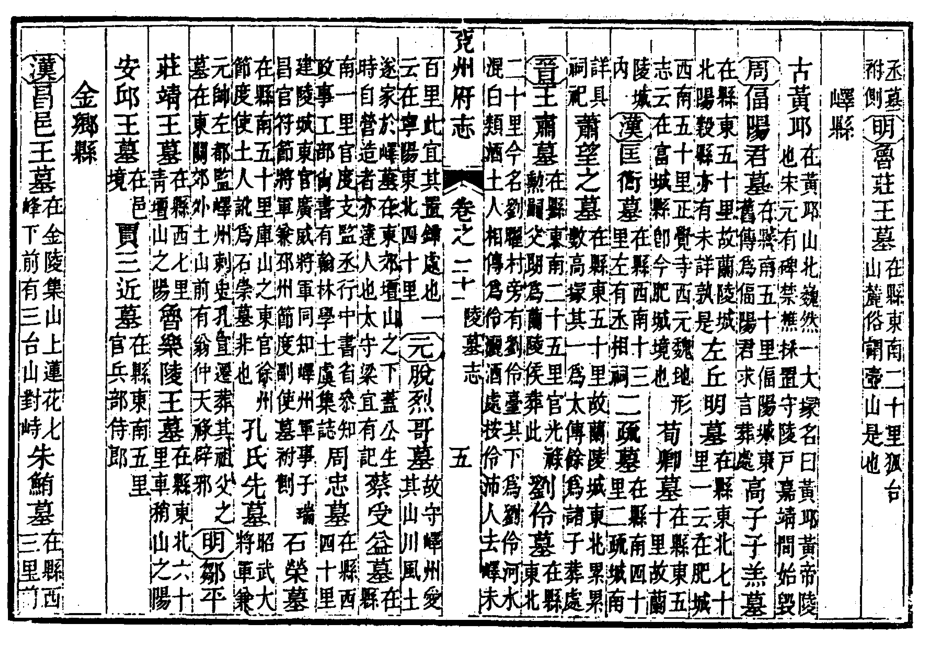 丞墓祔側明魯莊王墓在縣東南二十里狐台山麓俗謂壺山是也
嶧縣
古黃邱在黃邱山北巍然一大塚名曰黃邱黃帝陵也宋元有碑禁樵採置守陵戶嘉靖間始毀
周偪陽君墓在縣南五十里偪陽城東舊傳爲偪陽君求言葬處高子子羔墓
在縣東五十里故蘭陵城北陽穀縣亦有未詳孰是左丘明墓在縣東北七十里一云在肥城
西南五十里正覺寺西元魏地形志云在富城縣卽今肥城境也荀卿墓在縣東五十里故蘭
陵城內漢匡衡墓在縣西南十三里左有丞相祠二疏墓在縣南四十里二疏城南
詳具祠祀蕭望之墓在縣東五十里故蘭陵城東北累累數高塚其一爲太傅餘爲諸子葬處
晉王肅墓在縣東南二十五里官光祿勳嗣父朗爲蘭陵侯葬此劉伶墓在縣東北
二十里今名劉曜村旁有劉伶臺其下爲劉伶河水混白類酒土人相傳爲伶灑酒處按伶沛人去嶧未
兗州府志 卷之二十一 陵墓志 五
百里此宜其置鍤處也一云在寧陽東北四十里元脫烈哥墓故守嶧州愛其山川風土
遂家於嶧墓在東郊壇山之下蓋公生時自營造者亦達人也太守梁宜有記蔡受益墓在縣
南一里官度支監丞行中書省叅知政事工部尚書有翰林學士虞集誌周忠墓在縣西四十里
建陵城東官廣威將軍同知嶧州軍事子瑞昌官符節將軍兼邳州節度副使墓祔側石榮墓
在縣南五十里庫山之東官徐州節度使土人訛爲石崇墓非也孔氏先墓昭武大將軍兼
元帥左都監嶧州刺史孔宜遷葬其祖父之墓在東關郊外土山前有翁仲天祿辟邪明鄒平
莊靖王墓在縣西七里青壇山之陽魯樂陵王墓在縣東北六十里車稍山之陽
安邱王墓在邑境賈三近墓在縣東南五里官兵部侍郎
金鄉縣
漢昌邑王墓在金陵集山上蓮花七峰下前有三台山對峙朱鮪墓在縣西三里前